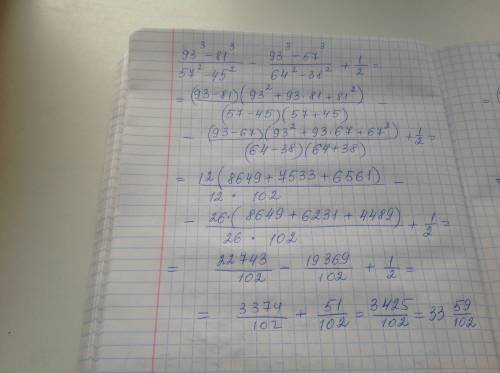 (93³ - 81³)/(57² - 45²) - (93³ - 67³)/(64² - 38²) + 1/2 =
= ((93-81)(93² + 93·81 + 81²))/((57-45)(57+45)) -
- ((93-67)(93² + 93·67 + 67²))/((64-38)(64+38)) + 1/2 =
= 12(8649 + 7533 + 6561)/(12 · 102) -
- 26·(8649 + 6231 + 4489)/(26 · 102) + 1/2 =
= 22743/102 - 19369/102 + 1/2 =
= 3374/102 + 51/102 = 3425/102 = 33 59/102